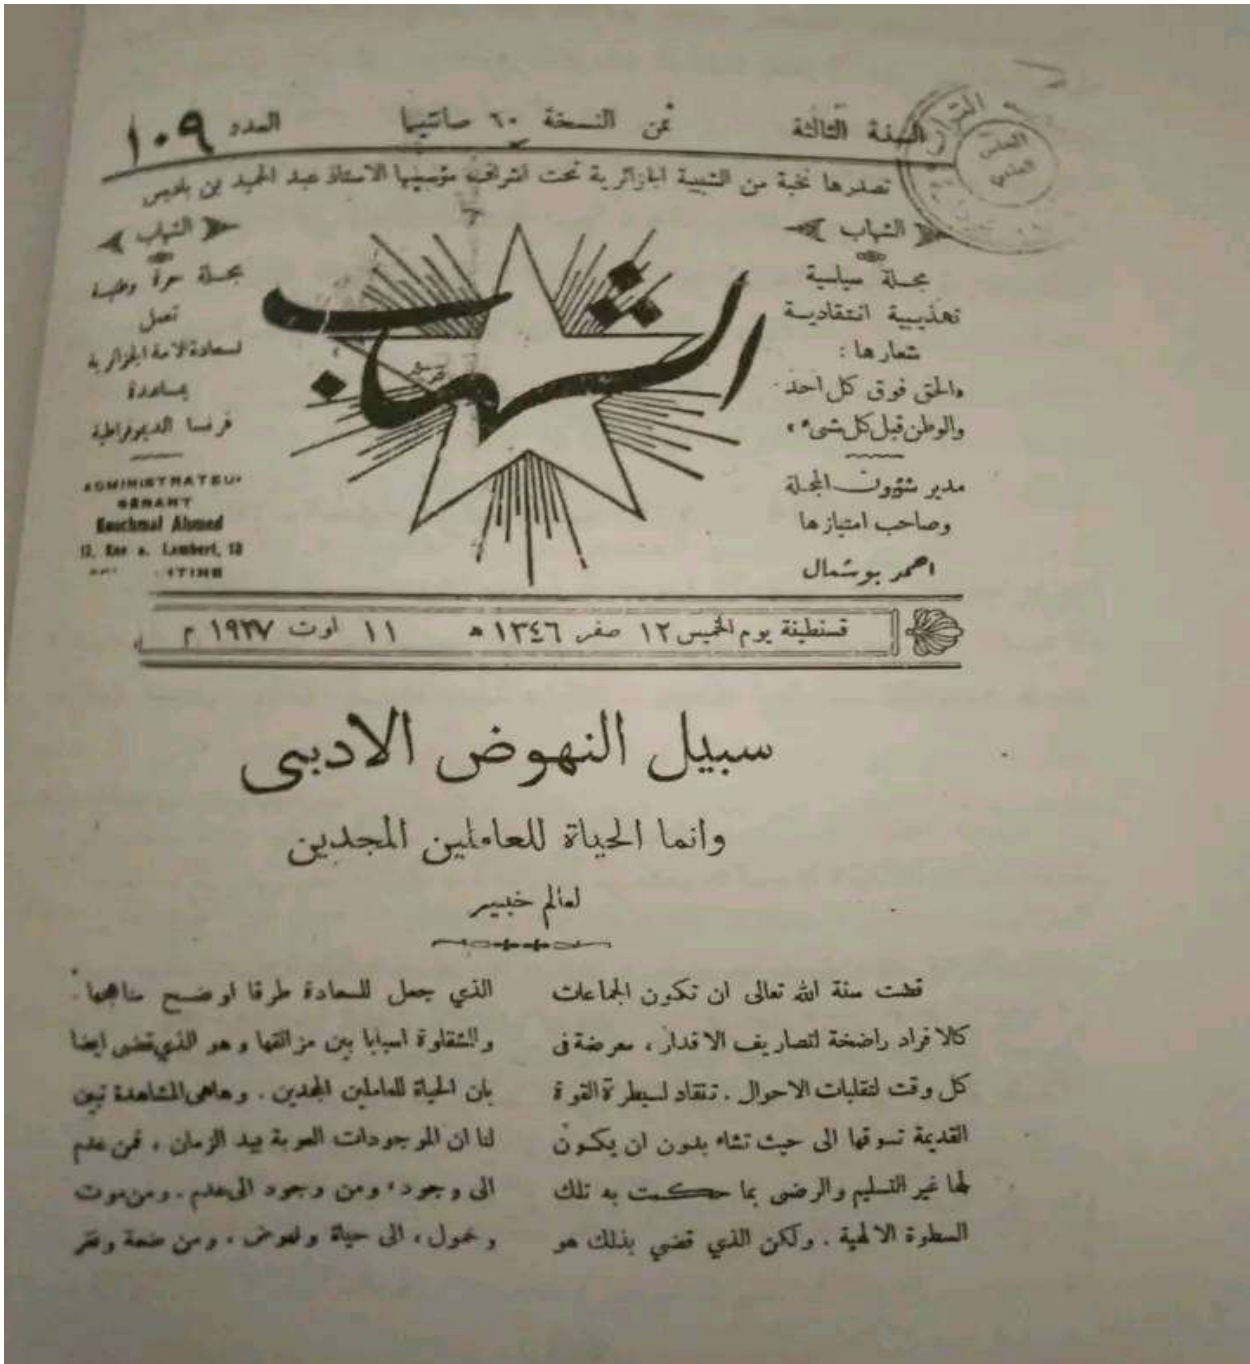 السنة الثالثة
ثمن النسخة ٦٠ صانتيما
العدد ١٠٩
تصدرها نخبة من الشبيبة الجزائرية تحت اشراف مؤسسها الاستاذ عبد الحميد بن باديس
الشهاب
مجلة سياسية
تهذيبية انتقادية
شعارها :
«الحق فوق كل احد
والوطن قبل كل شيء»
مدير شؤون المجلة
وصاحب امتيازها
احمد بوشمال
الشهاب
الشهاب
مجلة حرة وطنية
تعمل
لسعادة الامة الجزائرية
بمساعدة
فرنسا الديموقراطية
ADMINISTRATEUR
GÉRANT
Bouchmal Ahmed
13, Rue A. Lambert, 13
قسنطينة يوم الخميس ١٢ صفر ١٣٤٦ ه ١١ اوت ١٩٢٧ م
سبيل النهوض الادبى
وانما الحياة للعاملين المجدين
لعالم خبير
قضت سنة الله تعالى ان تكون الجماعات
كالافراد راضخة لتصاريف الاقدار ، معرضة فى
كل وقت لتقلبات الاحوال . تنقاد لسيطرة القوة
القديمة تسوقها الى حيث تشاء بدون ان يكون
لها غير التسليم والرضى بما حكمت به تلك
السطوة الالهية . ولكن الذي قضي بذلك هو
الذي جعل للسعادة طرقا اوضح مناهجها .
وللشقاوة اسبابا بين مزالقها وهو الذي قضى ايضا
بان الحياة للعاملين المجدين . وهاهى المشاهدة تبين
لنا ان الموجودات العوبة بيد الزمان ، فمن عدم
الى وجود ومن وجود الى عدم . ومن موت
وخمول ، الى حياة ونهوض ، ومن ضعة وفقر